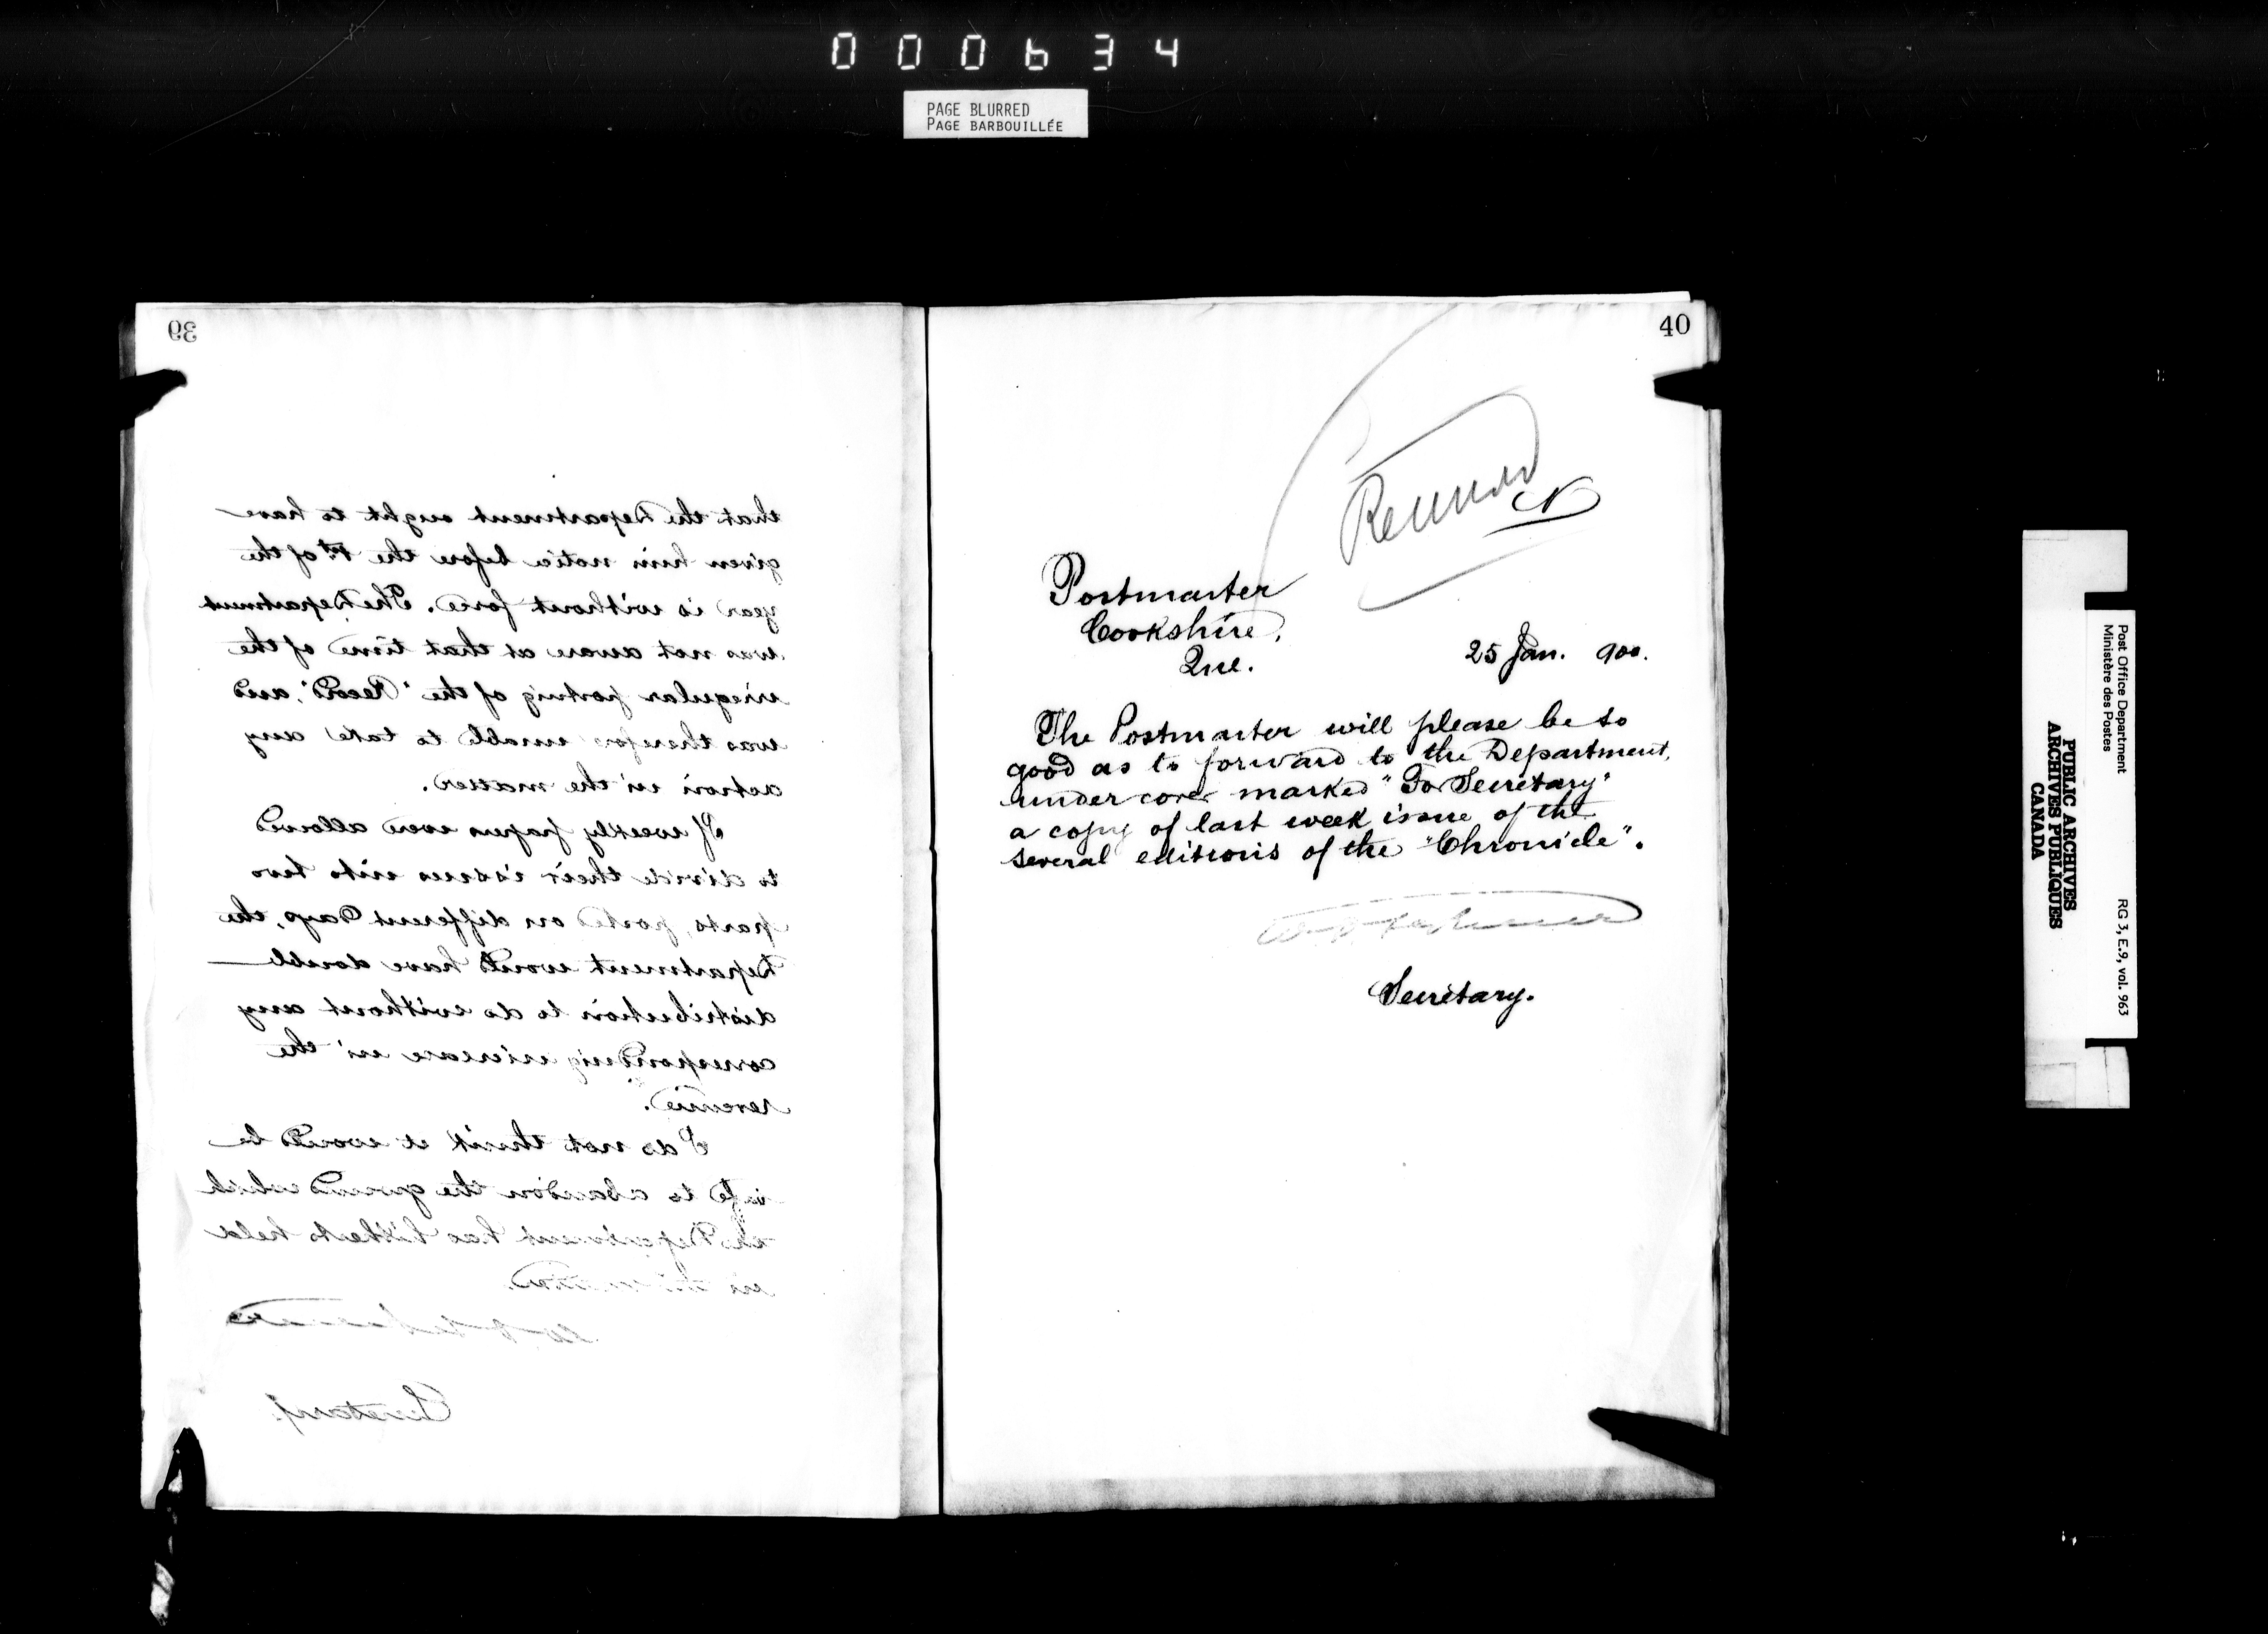 000634
PAGE BLURRED
PAGE BARBOUILLÉE
39
that the Department ought to have
given him notice before the 1st of the
year is without force. The Department
was not aware at that time of the
irregular posting of the "Record", and
was therefore unable to take any
action in the matter.
If weekly papers were allowed
to divide their issues into two
parts, posted on different days, the
Department would have double
distribution to do without any
corresponding increase in the
revenue.
I do not think it would be
safe to abandon the ground which
the Department has hitherto held
in this matter.
Secretary.
40
Postmaster
Cookshire,
Que.
25 Jan. 900.
The Postmaster will please be so
good as to forward to the Department,
under cover marked "For Secretary"
a copy of last week issue of the
several editions of the "Chronicle".
Secretary.
Post Office Department
Ministère des Postes
RG 3, E.9, vol. 963
PUBLIC ARCHIVES
ARCHIVES PUBLIQUES
CANADA